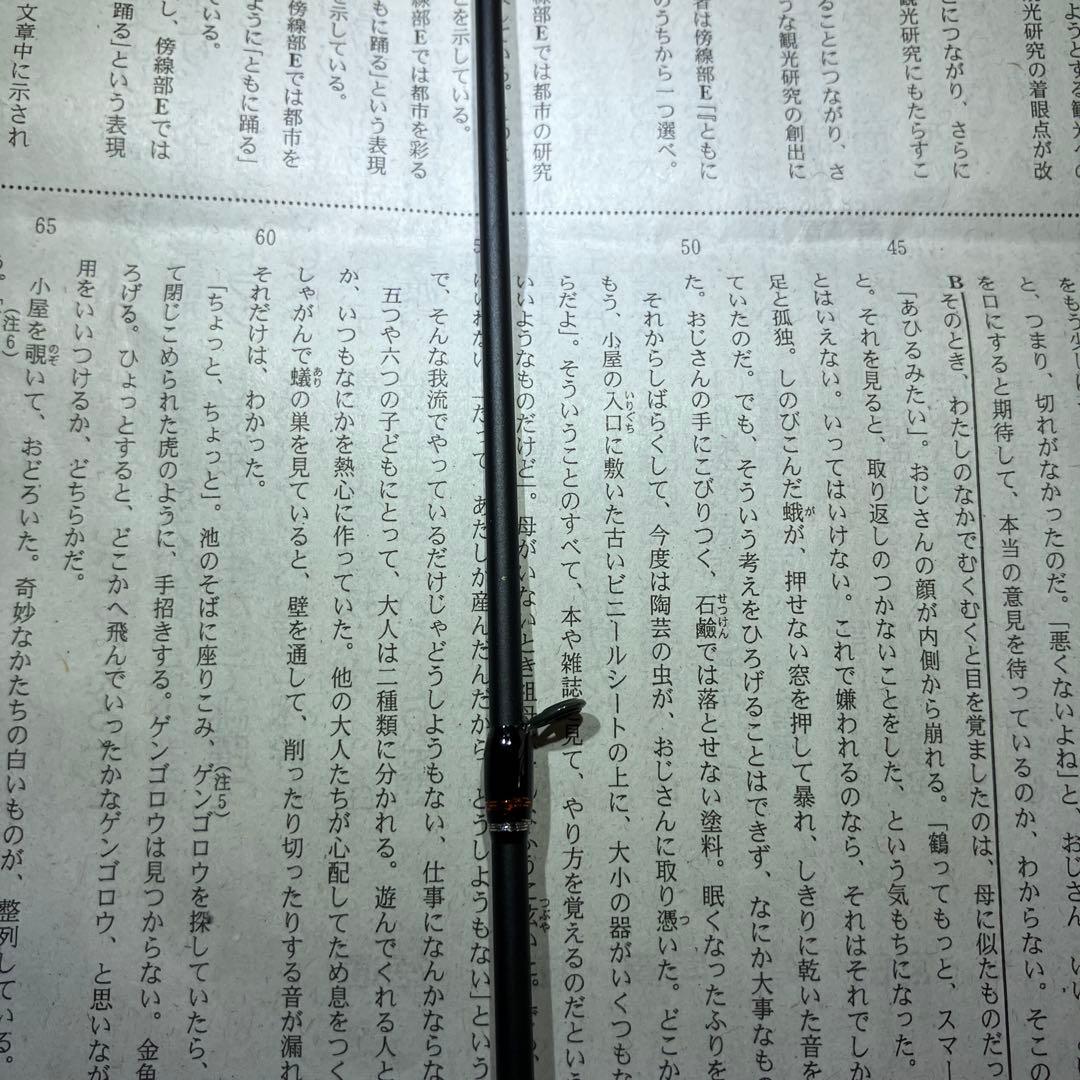 ようとする観光
光研究の着眼点が改
とにつながり、さらに
観光研究にもたらすこ
ることにつながり、さ
うな観光研究の創出に
者は傍線部E『ともに
のうちから一つ選べ。
部Eでは都市の研究
とを示している。
部Eでは都市を彩る
もに踊る」という表現
を示している。
傍線部Eでは都市を
ように「ともに踊る」
し、傍線部Eでは
踊る」という表現
ている。
文章中に示され
と、つまり、切れがなかったのだ。「悪くないよね」と、おじさん
を口にすると期待して、本当の意見を待っているのか、わからない。そこの
B そのとき、わたしのなかでむくむくと目を覚ましたのは、母に似たものだっ
「あひるみたい」。おじさんの顔が内側から崩れる。「鶴ってもっと、スマー
45
と。それを見ると、取り返しのつかないことをした、という気もちになった。
とはいえない。いってはいけない。これで嫌われるのなら、それはそれでしか
足と孤独。しのびこんだ蛾が、押せない窓を押して暴れ、しきりに乾いた音を
ていたのだ。でも、そういう考えをひろげることはできず、なにか大事なもの
た。おじさんの手にこびりつく、石鹼では落とせない塗料。眠くなったふりを
50
それからしばらくして、今度は陶芸の虫が、おじさんに取り憑いた。どこか
もう、小屋の入口に敷いた古いビニールシートの上に、大小の器がいくつも
らだよ」。そういうことのすべて、本や雑誌を見て、やり方を覚えるのだとい
いいようなものだけど」。母がいないとき祖母
いけない「だって、あたしが産んだんだから、どうしようもない」という
で、そんな我流でやっているだけじゃどうしようもない、仕事になんかならな
五つや六つの子どもにとって、大人は二種類に分かれる。遊んでくれる人と
か、いつもなにかを熱心に作っていた。他の大人たちが心配してため息をつく
しゃがんで蟻の巣を見ていると、壁を通して、削ったり切ったりする音が漏れ
60
それだけは、わかった。
「ちょっと、ちょっと」。池のそばに座りこみ、ゲンゴロウを探していたら、
(注5)
て閉じこめられた虎のように、手招きする。ゲンゴロウは見つからない。金魚
ろげる。ひょっとすると、どこかへ飛んでいったかなゲンゴロウ、と思いなが
用をいいつけるか、どちらかだ。
65
小屋を覗いて、おどろいた。奇妙なかたちの白いものが、整列している。
(注6)